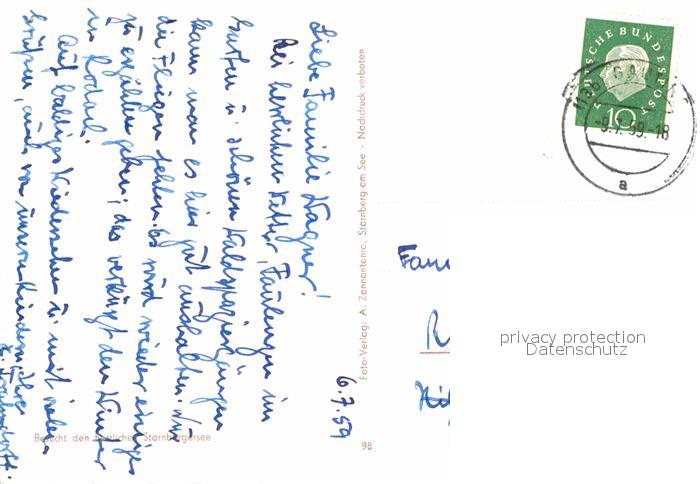 6.7.59
Liebe Familie Wagner!
Bei herrlichem Wetter, Faulenzen im
Garten u. schönen Waldspaziergängen
kann man es hier gut aushalten. Nur
die Flügen fehlen. Es wird wieder einiges
zu erzählen geben; das verkürzt den Winter
in Rodach.
Auf baldiges Wiedersehen u. mit vielen
Grüßen, auch von unseren Kindern, Ihre
Foto-Verlag: A. Zannantonio, Starnberg am See · Nachdruck verboten
Besucht den herrlichen Starnbergersee
98
DEUTSCHE BUNDESPOST
10
-9.7.59.-18
a
Fam
privacy protection
Datenschutz